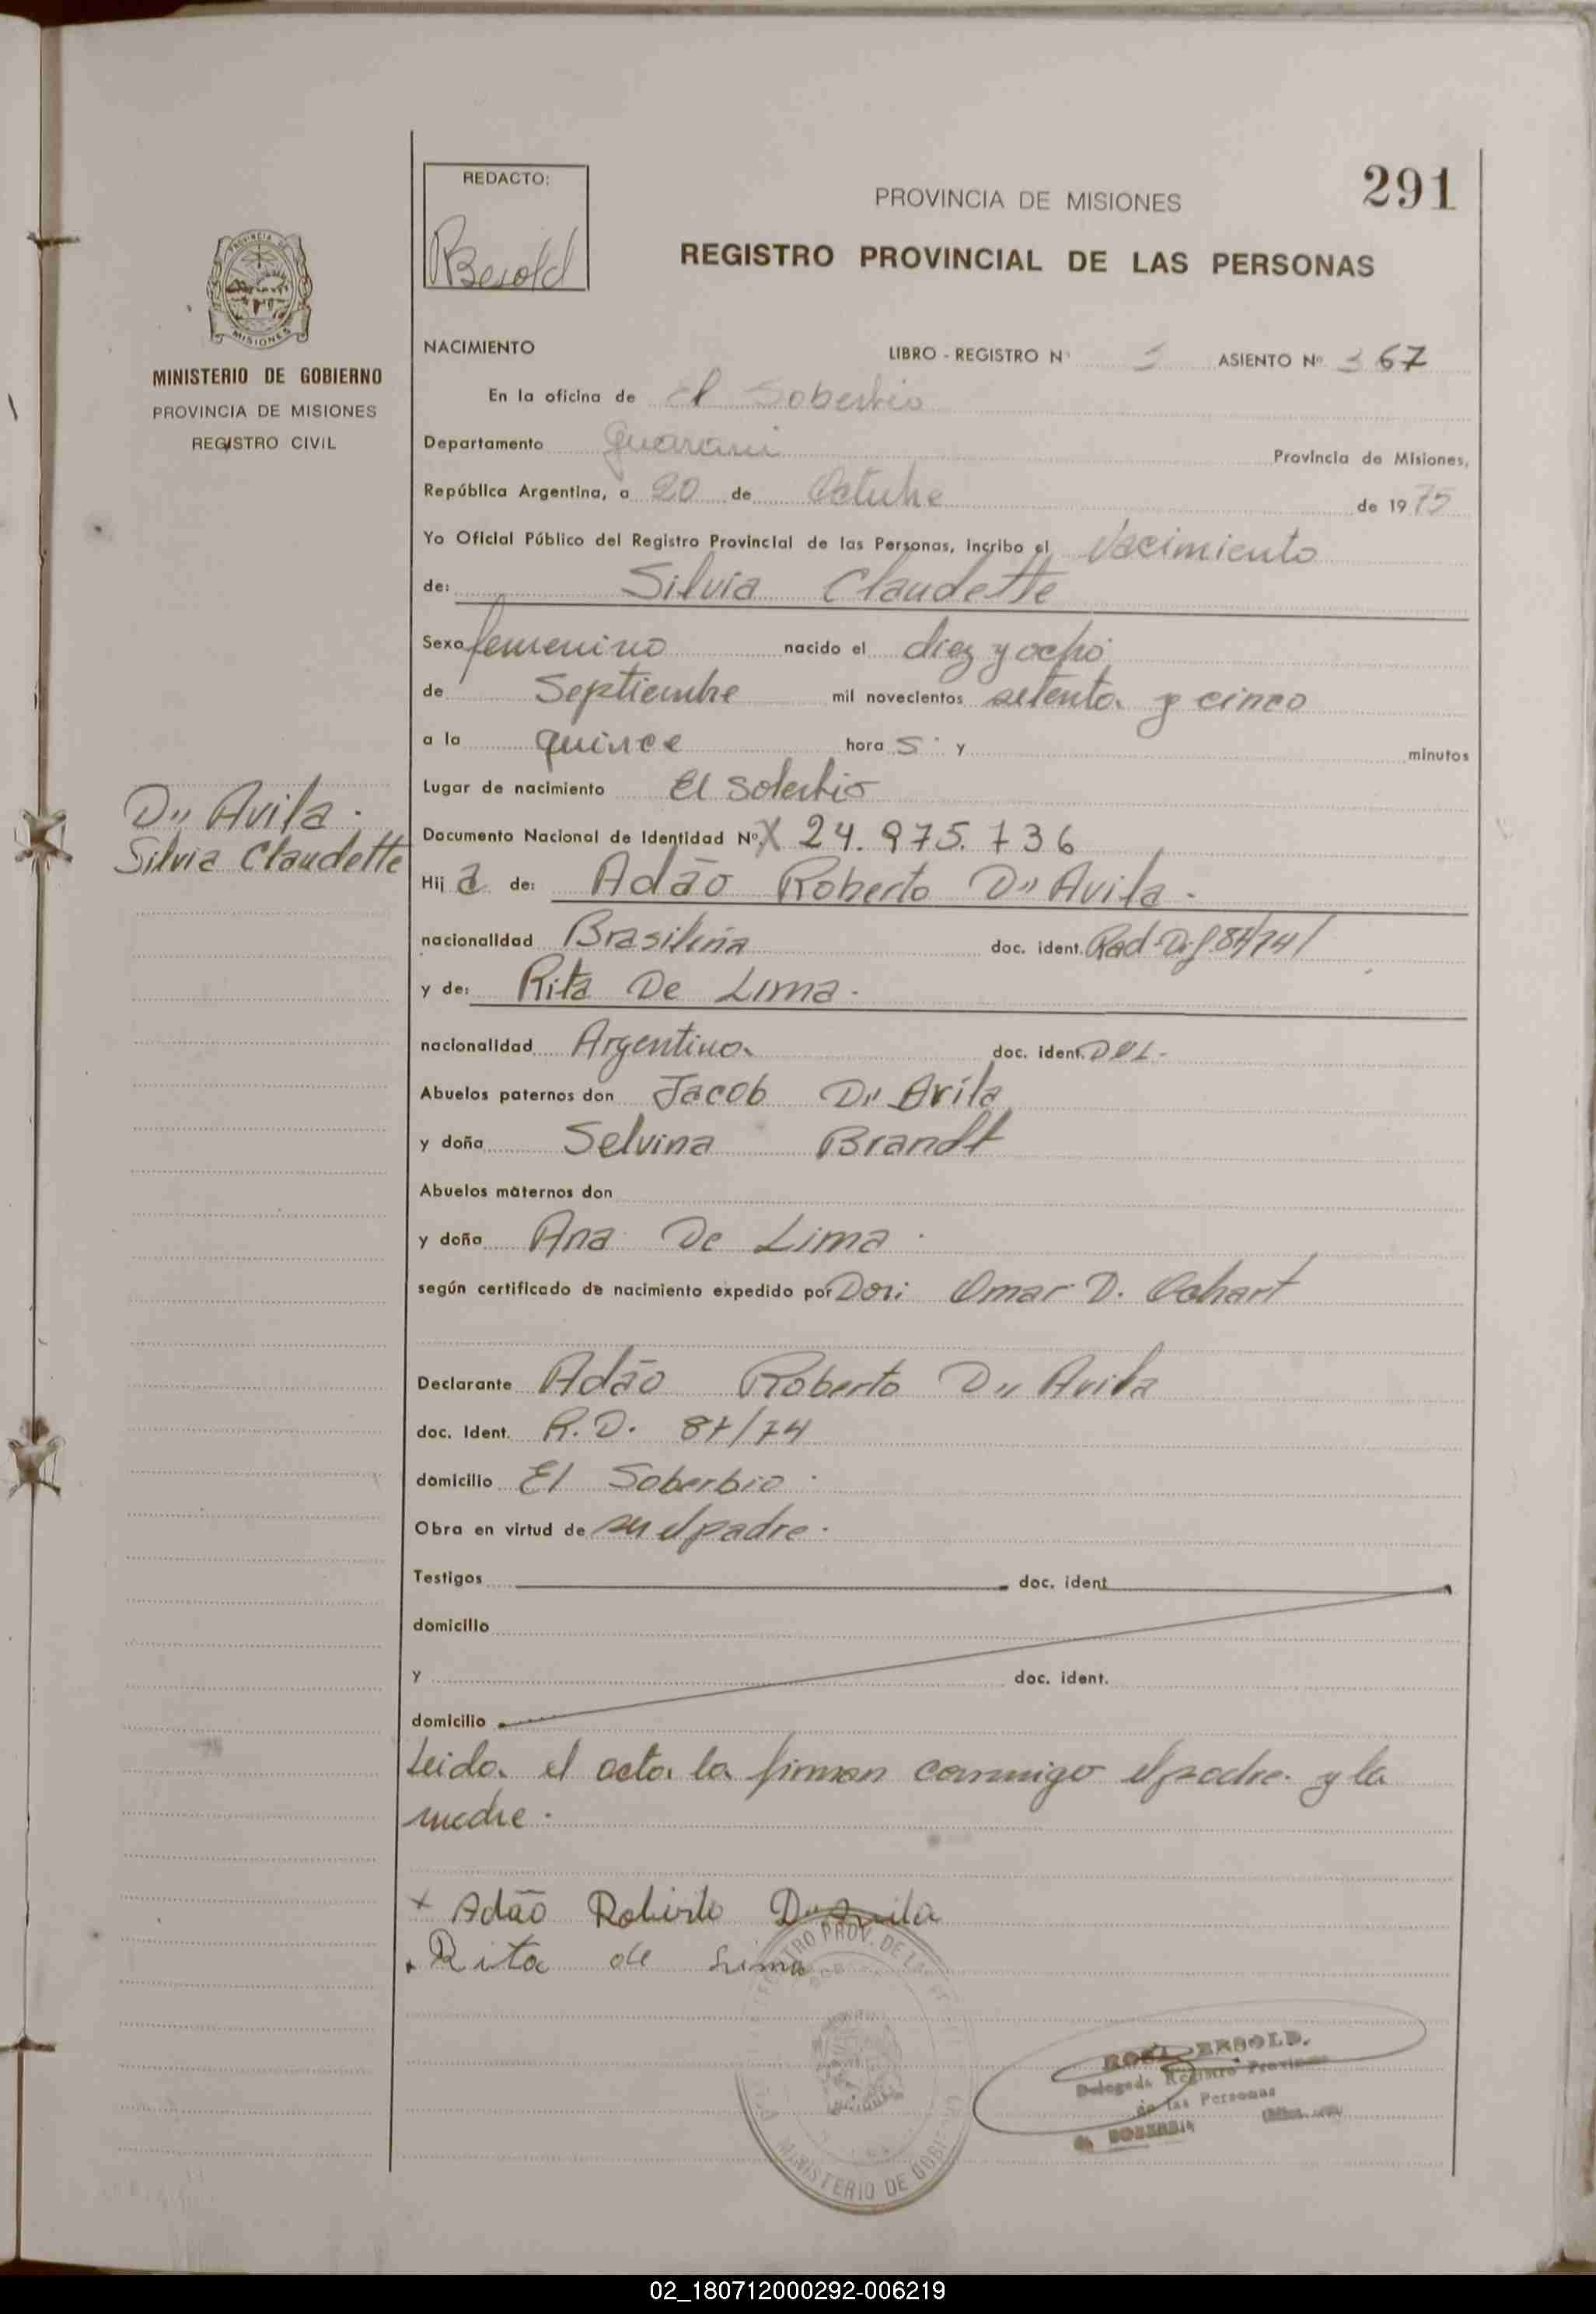 291
REDACTO:
Besold
PROVINCIA DE MISIONES
REGISTRO PROVINCIAL DE LAS PERSONAS
MISIONES
MINISTERIO DE GOBIERNO
PROVINCIA DE MISIONES
REGISTRO CIVIL
NACIMIENTO LIBRO - REGISTRO Nº ASIENTO Nº 367
En la oficina de El Soberbio
Departamento Guarani Provincia de Misiones,
República Argentina, a 20 de Octubre de 1975
Yo Oficial Público del Registro Provincial de las Personas, incribo el Nacimiento
de: Silvia Claudette
Sexo femenino nacido el diez y ocho
de Septiembre mil novecientos setenta y cinco
a la quince hora s y minutos
Lugar de nacimiento El Soberbio
D" Avila.
Silvia Claudette
Documento Nacional de Identidad Nº X 24.975.736
Hij a de: Adão Roberto D" Avila.
nacionalidad Brasileña doc. ident.
y de: Rita De Lima.
nacionalidad Argentina doc. ident.
Abuelos paternos don Jacob D" Avila
y doña Selvina Brandt
Abuelos maternos don
y doña Ana De Lima.
según certificado de nacimiento expedido por Omar D.
Declarante Adão Roberto D" Avila
doc. Ident. R.D. 87/74
domicilio El Soberbio.
Obra en virtud de ser el padre.
Testigos doc. ident
domicilio
y doc. ident.
domicilio
Leida el acta la firman conmigo el padre y la
madre.
x Adão Roberto D" Avila
Rita de Lima
MINISTERIO DE GOBI
Delegada Registro
de las Personas
02_180712000292-006219